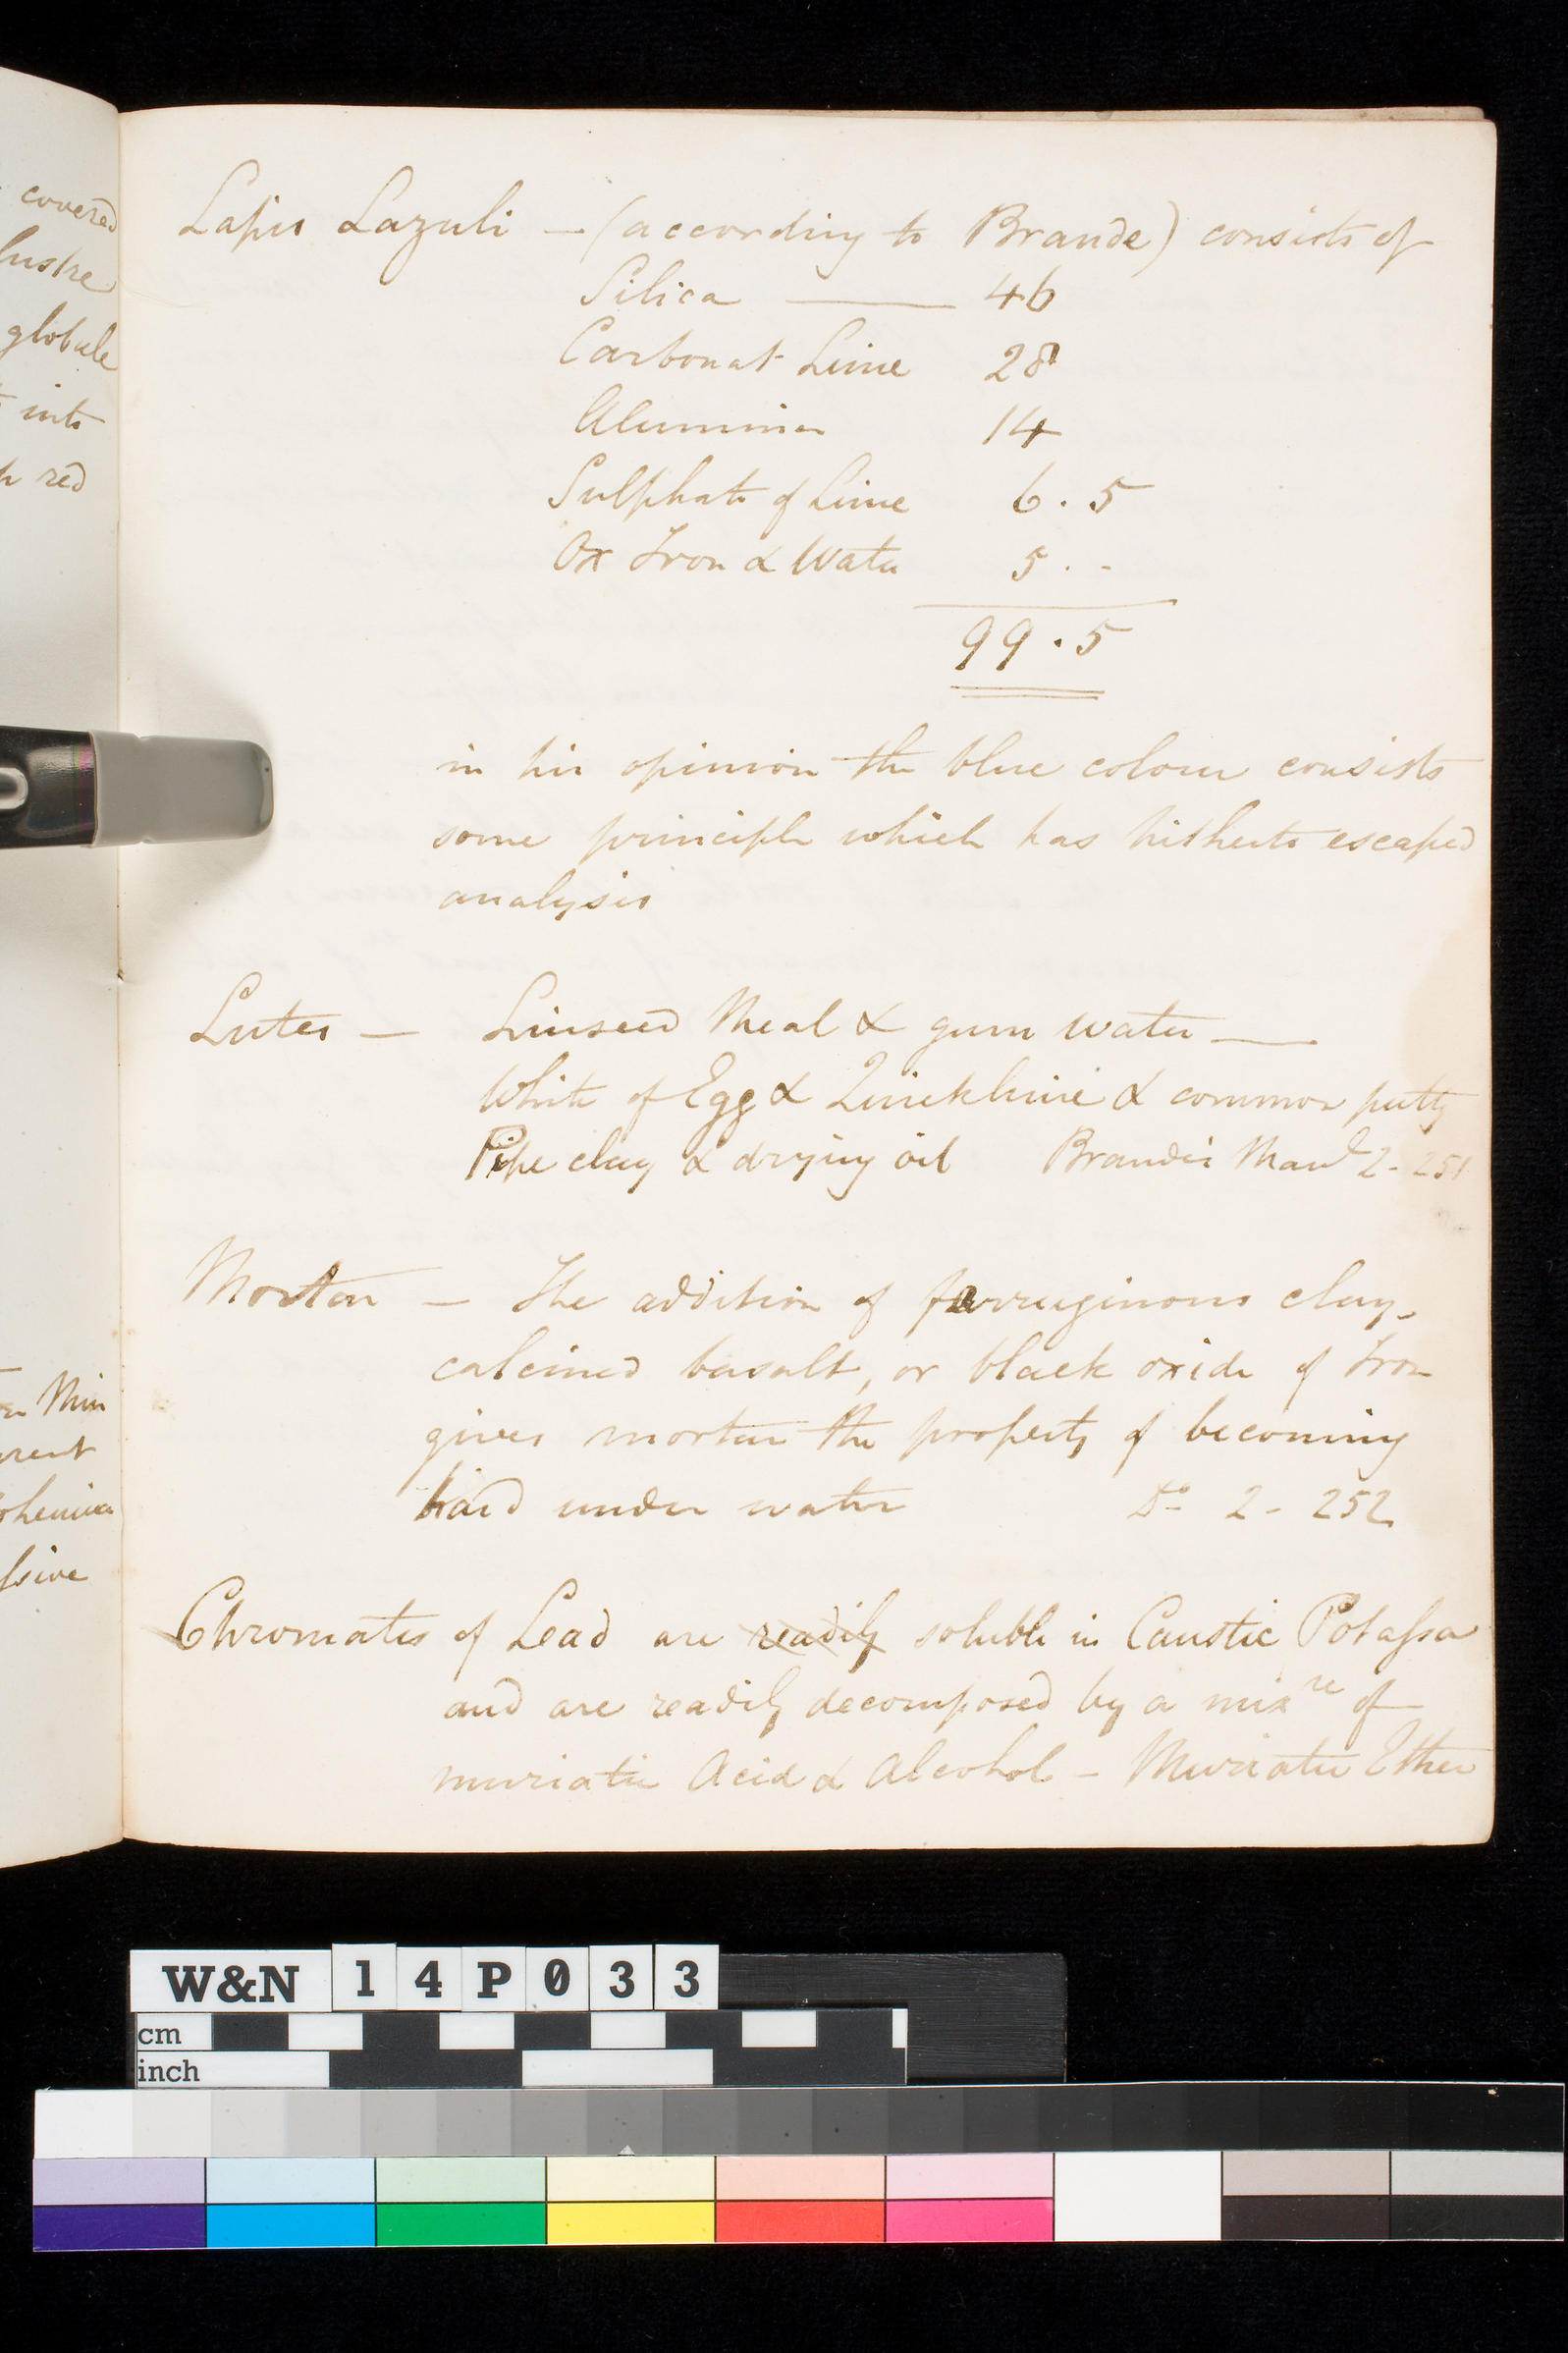 covered
lustre
globule
into
red
Min
rent
ohemia
ssive
Lapis Lazuli — (according to Brande) consists of
Silica — 46
Carbonat Lime 28
Alumina 14
Sulphate of Lime 6 . 5
Ox Iron & Water 5 . -
99 . 5
in his opinion the blue colour consists
some principle which has hitherto escaped
analysis
Lutes — Linseed Meal & gum water —
White of Egg & Quicklime & common putty
Pipe clay & drying oil Brande's Manl 2 - 251
Mortar — The addition of ferruginous clay,
calcined basalt, or black oxide of Iron
gives mortar the property of becoming
hard under water Do 2 - 252
Chromates of Lead are readily soluble in Caustic Potassa
and are readily decomposed by a mixre of
muriatic Acid & Alcohol — Muriatic Ether
W&N 14P033
cm
inch